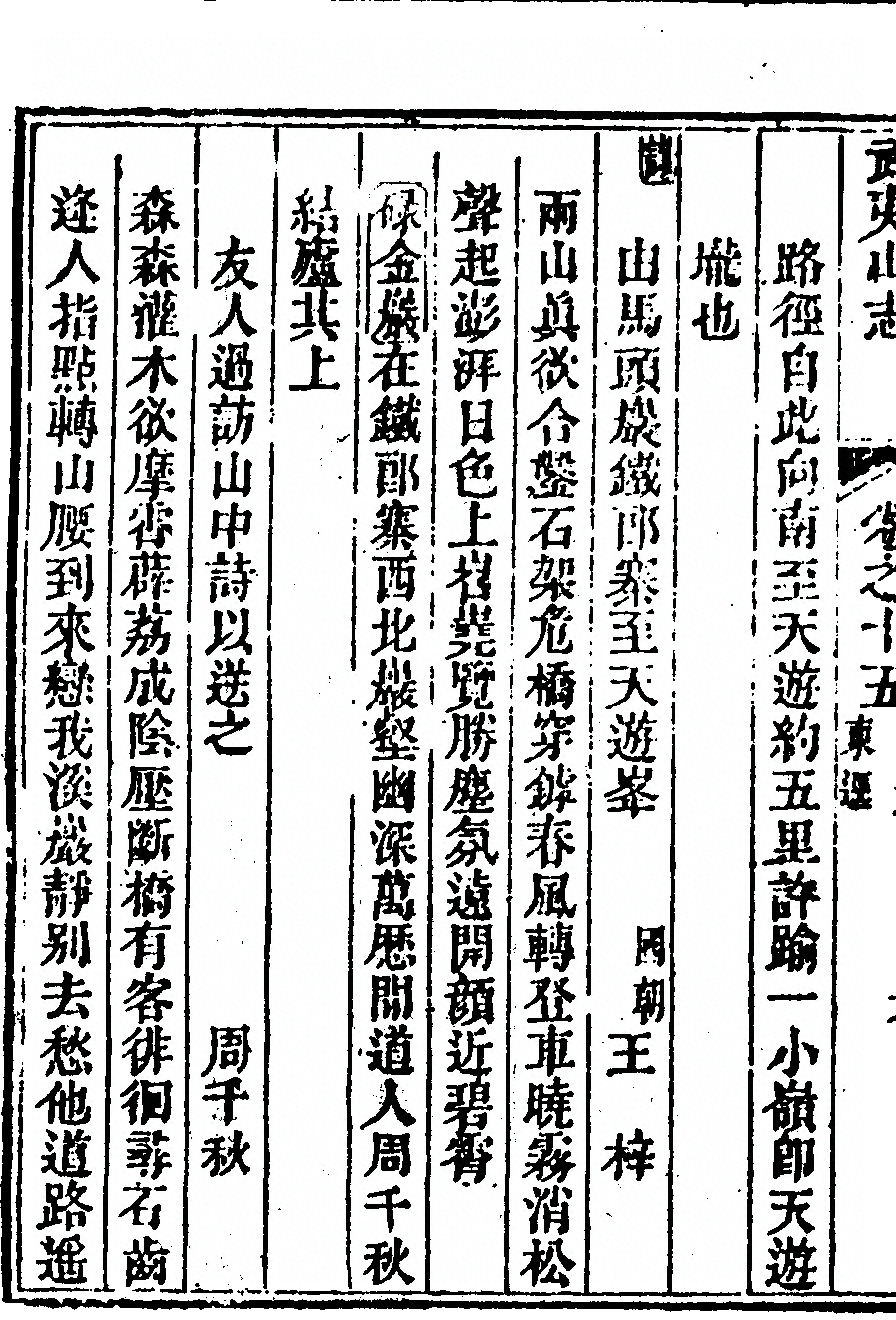 武夷山志 卷之十五 東逕
路徑自此向南至天遊約五里許踰一小嶺即天遊
壠也
由馬頭巖鐵郎寨至天遊峯 國朝 王梓
兩山眞欲合鑿石架危橋穿鏬春風轉登車曉霧消松
聲起澎湃日色上岧嶤覽勝塵氛遠開顔近碧霄
碌金巖在鐵郎寨西北巖壑幽深萬歴間道人周千秋
結廬其上
友人過訪山中詩以送之 周千秋
森森灌木欲摩霄薜荔成陰壓斷橋有客徘徊尋石齒
逢人指點轉山腰到來戀我溪巖靜别去愁他道路遥